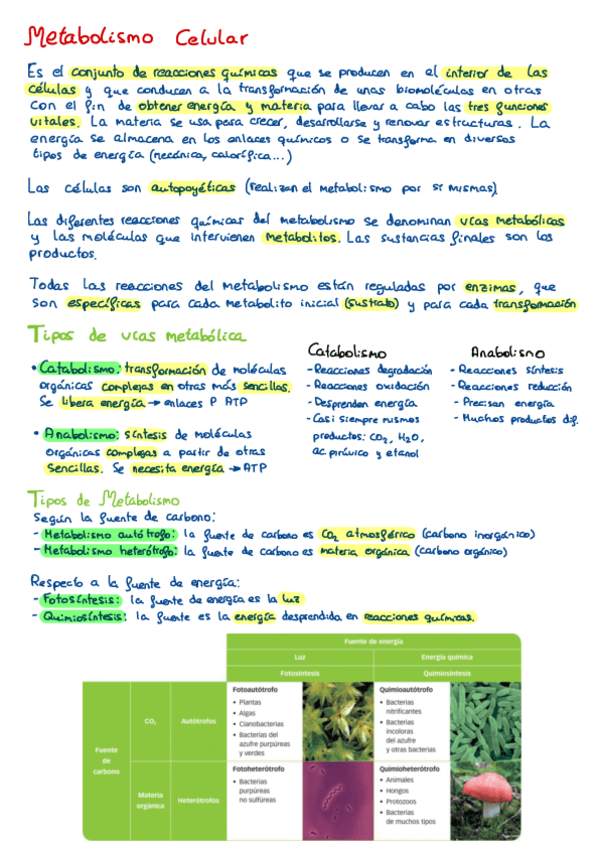 Metabolismo Celular
Es el conjunto de reacciones químicas que se producen en el interior de las
células y que conducen a la transformación de unas biomoléculas en otras
con el fin de obtener energía y materia para llevar a cabo las tres funciones
vitales. La materia se usa para crecer, desarrollarse y renovar estructuras. La
energía se almacena en los enlaces químicos o se transforma en diversos
tipos de energía (mecánica, calorífica...)
Las células son autopoyéticas (realizan el metabolismo por sí mismas)
Las diferentes reacciones químicas del metabolismo se denominan vías metabólicas
y las moléculas que intervienen metabolitos. Las sustancias finales son los
productos.
Todas las reacciones del metabolismo están reguladas por enzimas, que
son específicas para cada metabolito inicial (sustrato) y para cada transformación
Tipos de vías metabólica
• Catabolismo: transformación de moléculas
orgánicas complejas en otras más sencillas.
Se libera energía → enlaces P ATP
• Anabolismo: síntesis de moléculas
orgánicas complejas a partir de otras
sencillas. Se necesita energía → ATP
Catabolismo
- Reacciones degradación
- Reacciones oxidación
- Desprenden energía
- Casi siempre mismos
productos: CO₂, H₂O,
ac pirúvico y etanol
Anabolismo
- Reacciones síntesis
- Reacciones reducción
- Precisan energía
- Muchos productos dif.
Tipos de Metabolismo
Según la fuente de carbono:
- Metabolismo autótrofo: la fuente de carbono es CO₂ atmosférico (carbono inorgánico)
- Metabolismo heterótrofo: la fuente de carbono es materia orgánica (carbono orgánico)
Respecto a la fuente de energía:
- Fotosíntesis: la fuente de energía es la luz
- Quimiosíntesis: la fuente es la energía desprendida en reacciones químicas.
Fuente de energía
Luz
Energía química
Fotosíntesis
Quimiosíntesis
Fuente
de
carbono
CO₂
Autótrofos
Fotoautótrofo
• Plantas
• Algas
• Cianobacterias
• Bacterias del
azufre purpúreas
y verdes
Quimioautótrofo
• Bacterias
nitrificantes
• Bacterias
incoloras
del azufre
y otras bacterias
Materia
orgánica
Heterótrofos
Fotoheterótrofo
• Bacterias
purpúreas
no sulfúreas
Quimioheterótrofo
• Animales
• Hongos
• Protozoos
• Bacterias
de muchos tipos